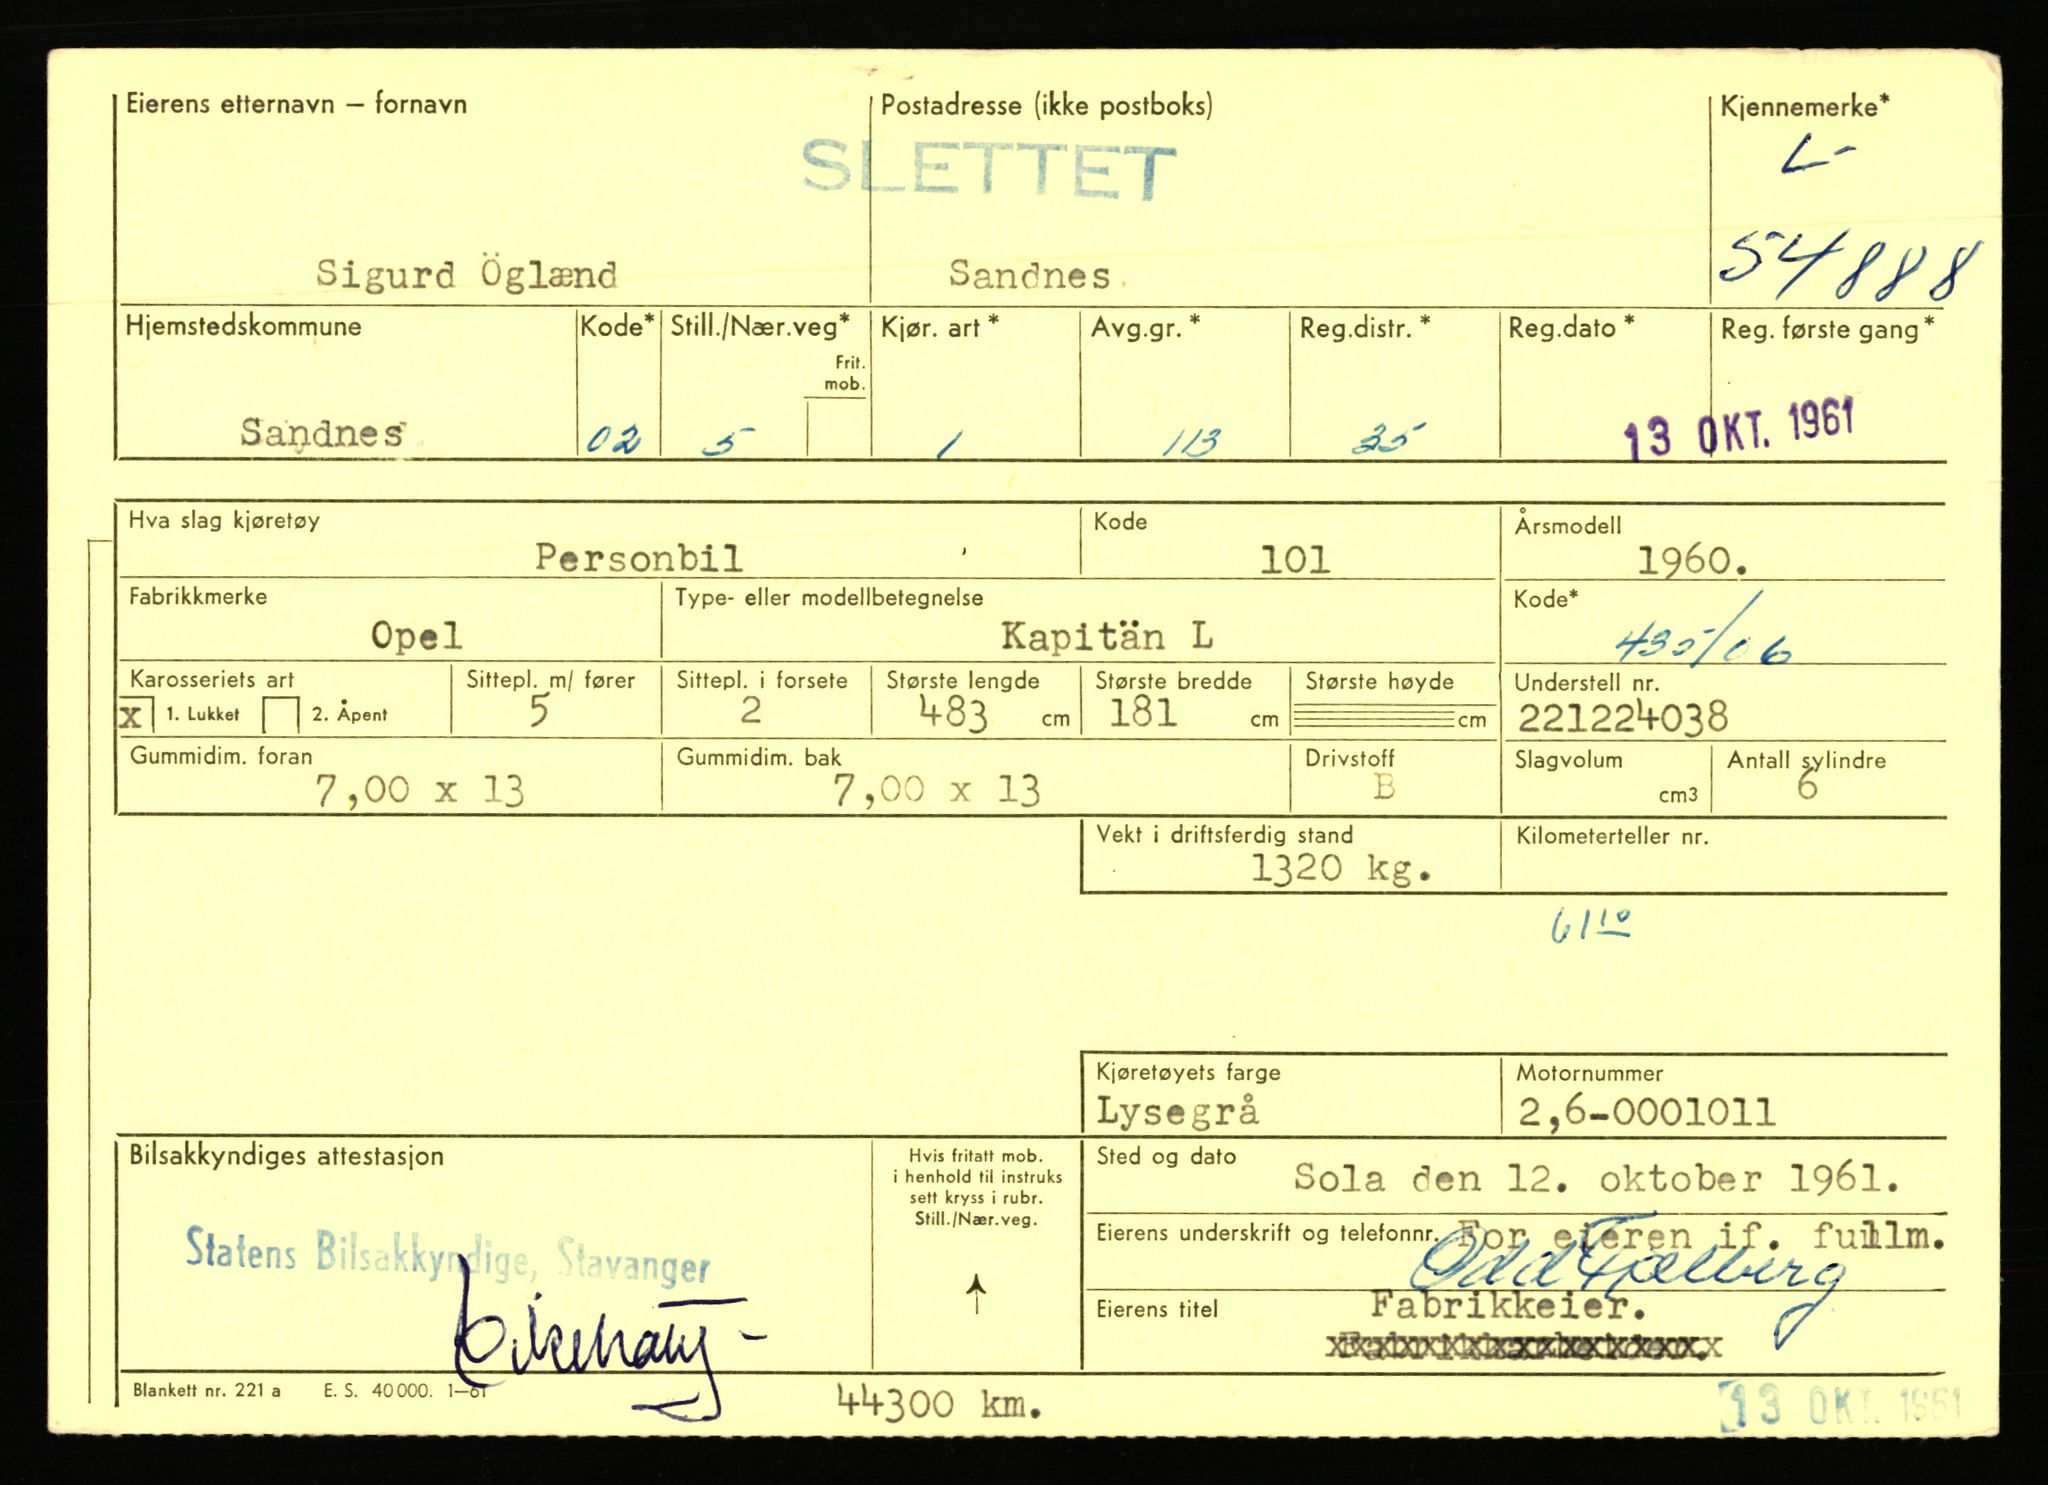 Eierens etternavn – fornavn
Postadresse (ikke postboks)
Kjennemerke*
SLETTET
L-
54888
Sigurd Öglænd
Sandnes
Hjemstedskommune
Kode*
Still./Nær.veg*
Kjør. art *
Avg.gr. *
Reg.distr. *
Reg.dato *
Reg. første gang*
Frit. mob.
Sandnes
02
5
1
113
35
13 OKT. 1961
Hva slag kjøretøy
Kode
Årsmodell
Personbil
101
1960.
Fabrikkmerke
Type- eller modellbetegnelse
Kode*
Opel
Kapitän L
435/06
Karosseriets art
Sittepl. m/ fører
Sittepl. i forsete
Største lengde
Største bredde
Største høyde
Understell nr.
x 1. Lukket
2. Åpent
5
2
483 cm
181 cm
cm
221224038
Gummidim. foran
Gummidim. bak
Drivstoff
Slagvolum
Antall sylindre
7,00 x 13
7,00 x 13
B
cm3
6
Vekt i driftsferdig stand
Kilometerteller nr.
1320 kg.
61 10
Kjøretøyets farge
Motornummer
Lysegrå
2,6-0001011
Bilsakkyndiges attestasjon
Hvis fritatt mob.
i henhold til instruks
sett kryss i rubr.
Still./Nær.veg.
Sted og dato
Sola den 12. oktober 1961.
Statens Bilsakkyndige, Stavanger
Eierens underskrift og telefonnr.
For eieren if. fullm.
Eierens titel
Fabrikkeier.
Blankett nr. 221 a E. S. 40 000. 1–61
44300 km.
13 OKT. 1961